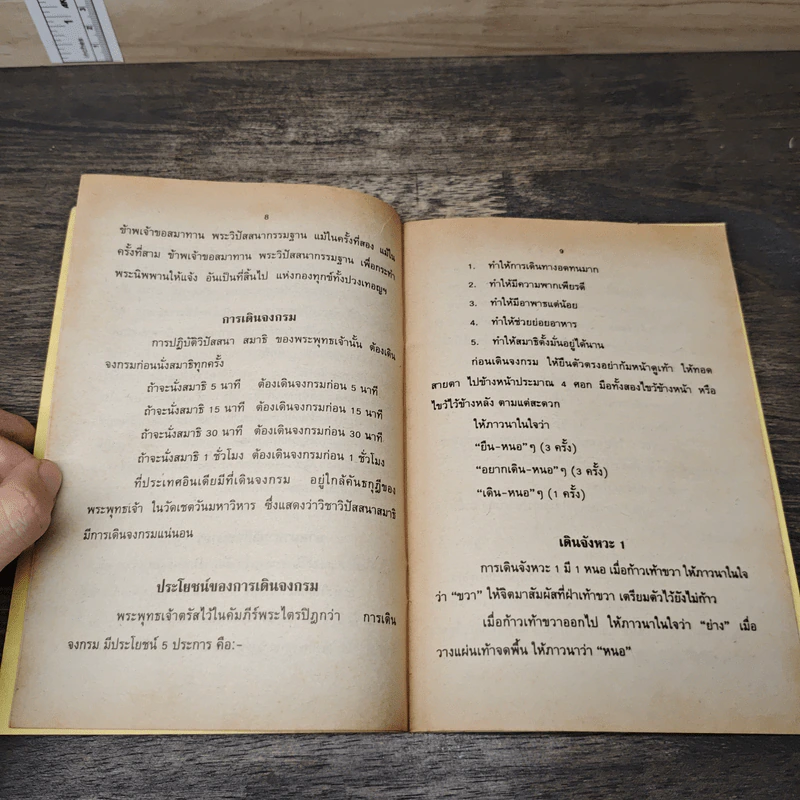 8
ข้าพเจ้าขอสมาทาน พระวิปัสสนากรรมฐาน แม้ในครั้งที่สอง แม้ใน
ครั้งที่สาม ข้าพเจ้าขอสมาทาน พระวิปัสสนากรรมฐาน เพื่อกระทำ
พระนิพพานให้แจ้ง อันเป็นที่สิ้นไป แห่งกองทุกข์ทั้งปวงเทอญฯ
การเดินจงกรม
การปฏิบัติวิปัสสนา สมาธิ ของพระพุทธเจ้านั้น ต้องเดิน
จงกรมก่อนนั่งสมาธิทุกครั้ง
ถ้าจะนั่งสมาธิ 5 นาที ต้องเดินจงกรมก่อน 5 นาที
ถ้าจะนั่งสมาธิ 15 นาที ต้องเดินจงกรมก่อน 15 นาที
ถ้าจะนั่งสมาธิ 30 นาที ต้องเดินจงกรมก่อน 30 นาที
ถ้าจะนั่งสมาธิ 1 ชั่วโมง ต้องเดินจงกรมก่อน 1 ชั่วโมง
ที่ประเทศอินเดียมีที่เดินจงกรม อยู่ใกล้คันธกุฎีของ
พระพุทธเจ้า ในวัดเชตวันมหาวิหาร ซึ่งแสดงว่าวิชาวิปัสสนาสมาธิ
มีการเดินจงกรมแน่นอน
ประโยชน์ของการเดินจงกรม
พระพุทธเจ้าตรัสไว้ในคัมภีร์พระไตรปิฎกว่า การเดิน
จงกรม มีประโยชน์ 5 ประการ คือ:-
9
1. ทำให้การเดินทางอดทนมาก
2. ทำให้มีความพากเพียรดี
3. ทำให้มีอาพาธแต่น้อย
4. ทำให้ช่วยย่อยอาหาร
5. ทำให้สมาธิตั้งมั่นอยู่ได้นาน
ก่อนเดินจงกรม ให้ยืนตัวตรงอย่าก้มหน้าดูเท้า ให้ทอด
สายตา ไปข้างหน้าประมาณ 4 ศอก มือทั้งสองไขว้ข้างหน้า หรือ
ไขว้ไว้ข้างหลัง ตามแต่สะดวก
ให้ภาวนาในใจว่า
“ยืน-หนอ” ๆ (3 ครั้ง)
“อยากเดิน-หนอ” ๆ (3 ครั้ง)
“เดิน-หนอ” ๆ (1 ครั้ง)
เดินจังหวะ 1
การเดินจังหวะ 1 มี 1 หนอ เมื่อก้าวเท้าขวา ให้ภาวนาในใจ
ว่า “ขวา” ให้จิตมาสัมผัสที่ฝ่าเท้าขวา เตรียมตัวไว้ยังไม่ก้าว
เมื่อก้าวเท้าขวาออกไป ให้ภาวนาในใจว่า “ย่าง” เมื่อ
วางแผ่นเท้าจดพื้น ให้ภาวนาว่า “หนอ”